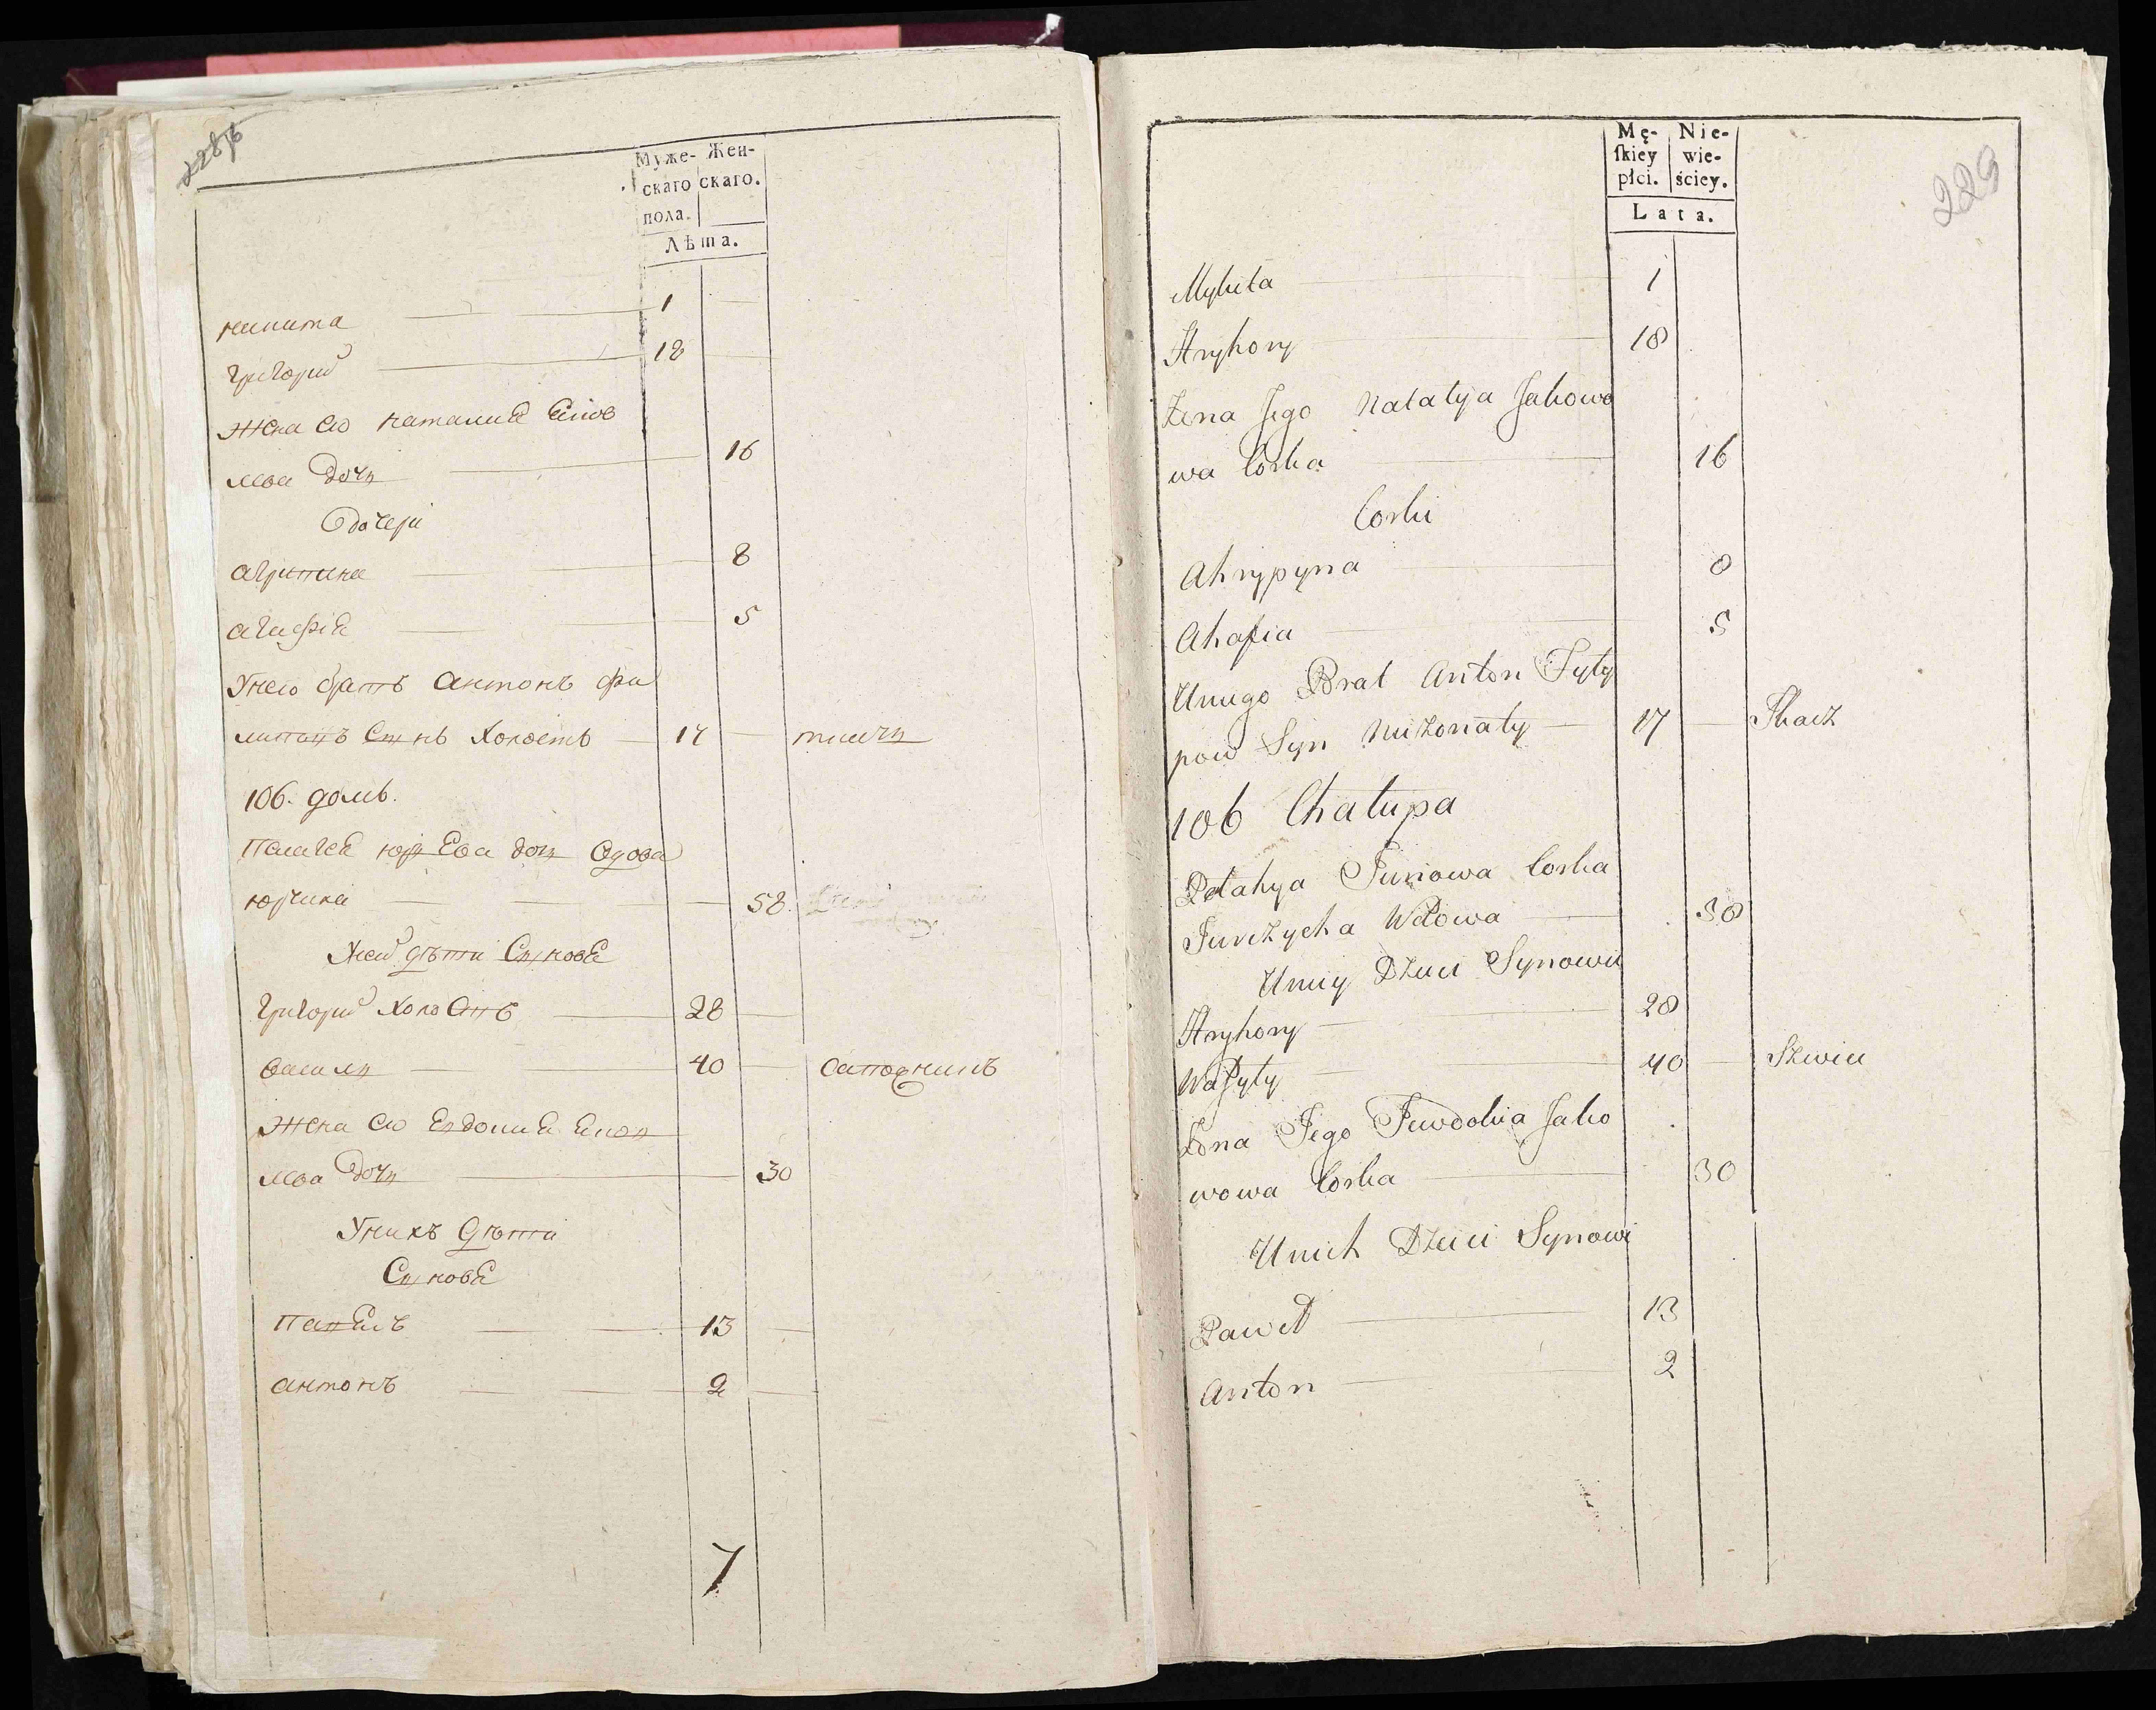 228об
Муже- Жен-
скаго скаго.
пола.
Лѣта.
никита 1
григорий 18
жена его наталиѣ Еков
лева дочь 16
дочери
агрипина 8
агафиѣ 5
Унего братъ антонъ фи
липовъ Сынъ холостъ 17 ткачь
106. домъ.
Палагеѣ юрьева дочь вдова
юрчиха 58.
Унеи дѣти Сыновѣ
григорий холостъ 28
василь 40 сапожникъ
жена его Евдокиѣ Еков
лева дочь 30
Унихъ дѣти
Сыновѣ
павелъ 13
антонъ 2
7
Mę- Nie-
skiey wie-
płci. ściey.
Lata.
229
Mykita 1
Hryhory 18
Żena Jego Natalyja Jakowo
wa Corka 16
Corki
Ahrypyna 8
Ahafia 5
Uniego Brat Anton Fyły
pow Syn Nieżonaty 17 Tkacz
106 Chałupa
Pelahya Juriowa Corka
Jurczycha Wdowa 58
Uniey Dzieci Synowie
Hryhory 28
Wasyly 40 Szwiec
Żona Jego Jewdokia Jako
wowa Corka 30
Unich Dzieci Synowie
Paweł 13
Anton 2